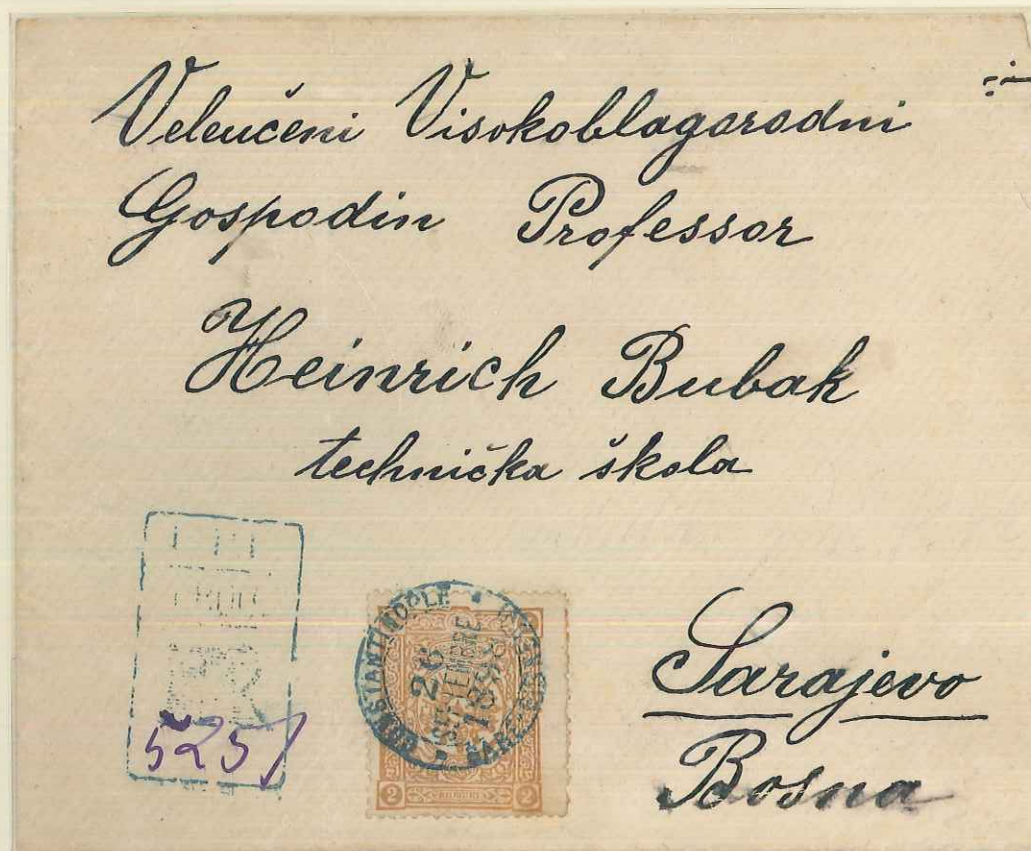 Veleučeni Visokoblagorodni
Gospodin Professor
Heinrich Bubak
technička škola
Sarajevo
Bosna
CONSTANTINOPLE
26
SEPTEMBRE
5257
2 2